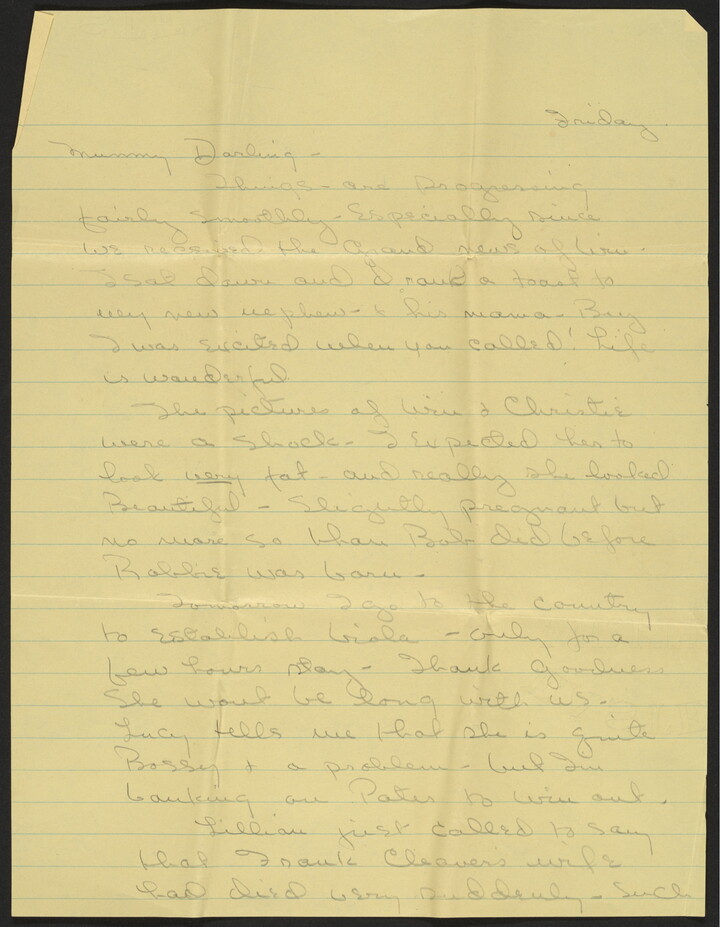 Friday
Mummy Darling -
Things - are Progressing
fairly smoothly - Especially since
we received the Grand news of Win.
I sat down and drank a toast to
my new nephew - & his mama - Boy
I was excited when you called! Life
is wonderful
The pictures of Win & Christie
were a shock - I expected her to
look very fat - and really she looked
Beautiful - Slightly pregnant but
no more so than Bob did before
Robbie was born -
Tomorrow I go to the country
to Establish Viola - only for a
few hours stay - Thank Goodness
She wont be long with us -
Lucy tells me that she is quite
Bossy & a problem - but I'm
banking on Pates to win out.
Lillian just called to say
that Frank Cleaver's wife
had died very suddenly - Such